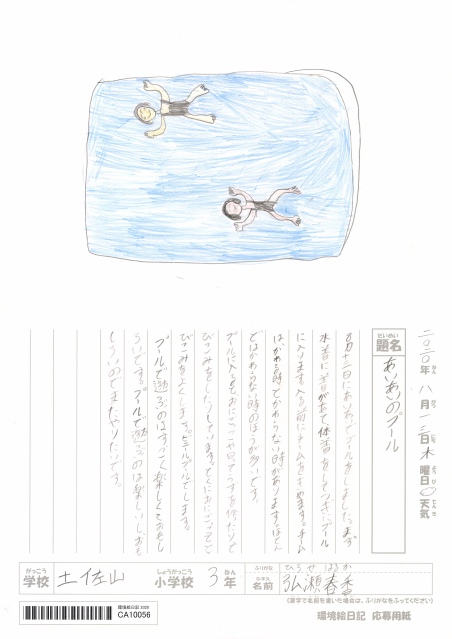 二〇二〇年八月一三日木曜日〇天気
題名
だいめい
あいあいのプール
八月十三日にあいあいでプールをしました。まず
水着に着がえて体そうをしてつぎにプール
に入ります。入る前にチームをきめます。チーム
はかわる時とかわらない時があります。ほとん
どはかわらない時のほうが多いです。
プールに入るとおにごっこや
びこみをしたりしています。とくにおにごっこと
びこみをよくします。ビニールプールでします。
プールで遊ぶのはすごく楽しくておもし
ろいです。プールで遊ぶのは楽しいしおも
しろいのでまたやりたいです。
がっこう
学校
土佐山
しょうがっこう
小学校
3
ねん
年
ふりがな
ひろせ はるか
なまえ
名前
弘瀬春香
(漢字で名前を書いた場合は、ふりがなをふってください)
環境絵日記 2020
CA10056
環境絵日記 応募用紙